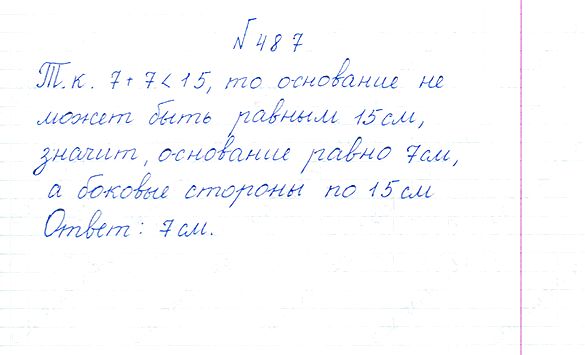 № 487
Т.к. 7+7<15, то основание не
может быть равным 15 см,
значит, основание равно 7 см,
а боковые стороны по 15 см
Ответ: 7 см.